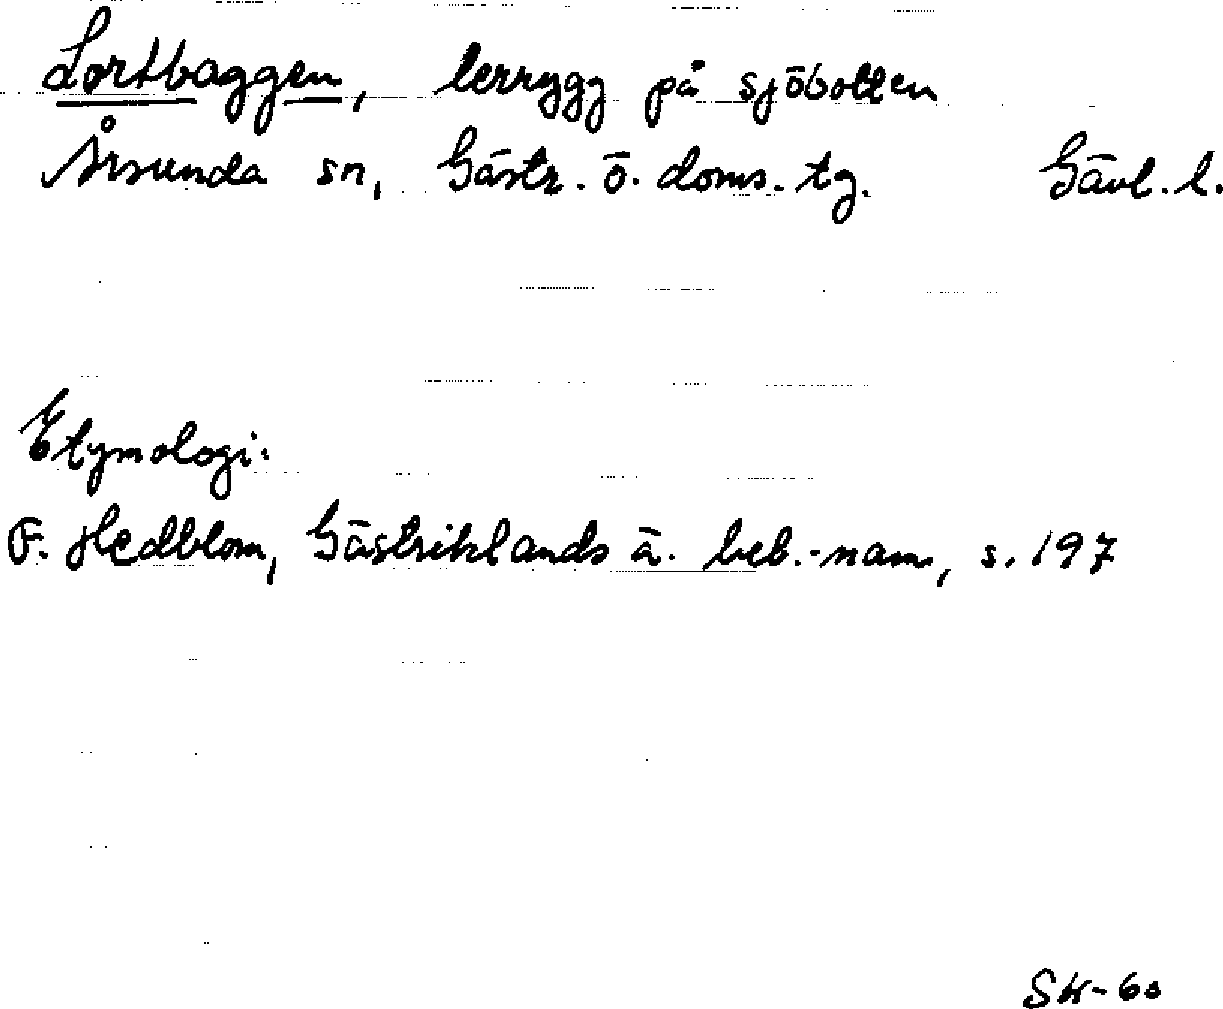 Lortbaggen, lerrygg på sjöbotten
Årsunda sn, Gästr. ö. doms. tg. Gävl. l.
Etymologi:
F. Hedblom, Gästriklands ä. beb.-namn, s. 197